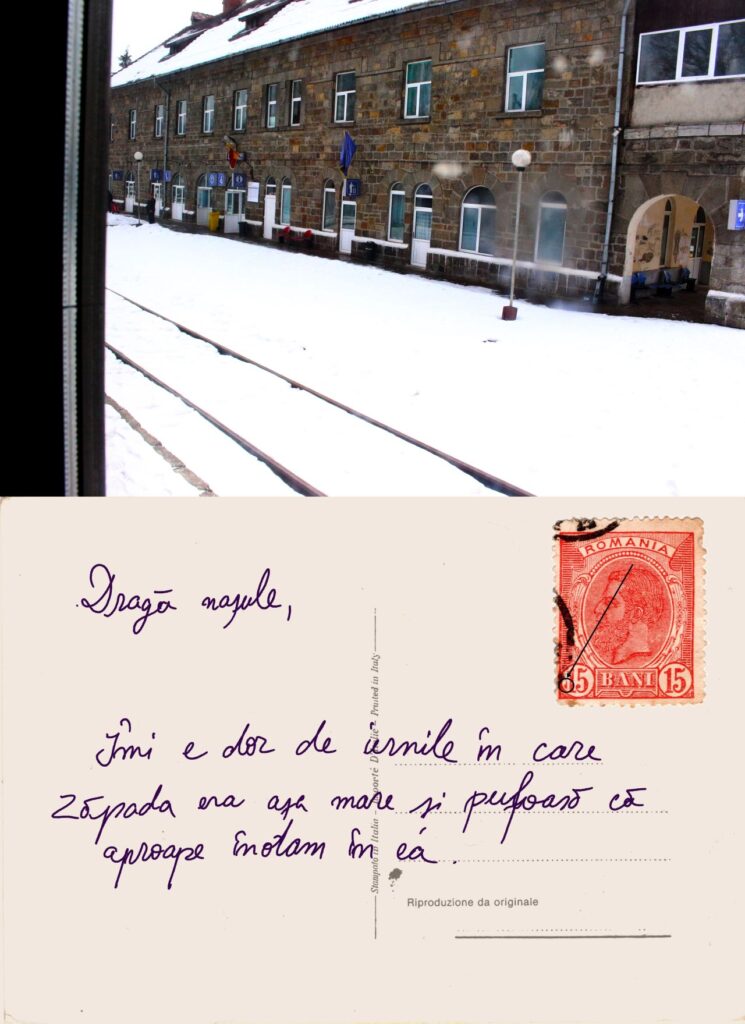 ROMANIA
15 BANI 15
Dragă nașule,
Îmi e dor de iernile în care
zăpada era așa mare și pufoasă că
aproape înotam în ea.
Stampato in Italia - Importé D'Italie - Printed in Italy
Riproduzione da originale